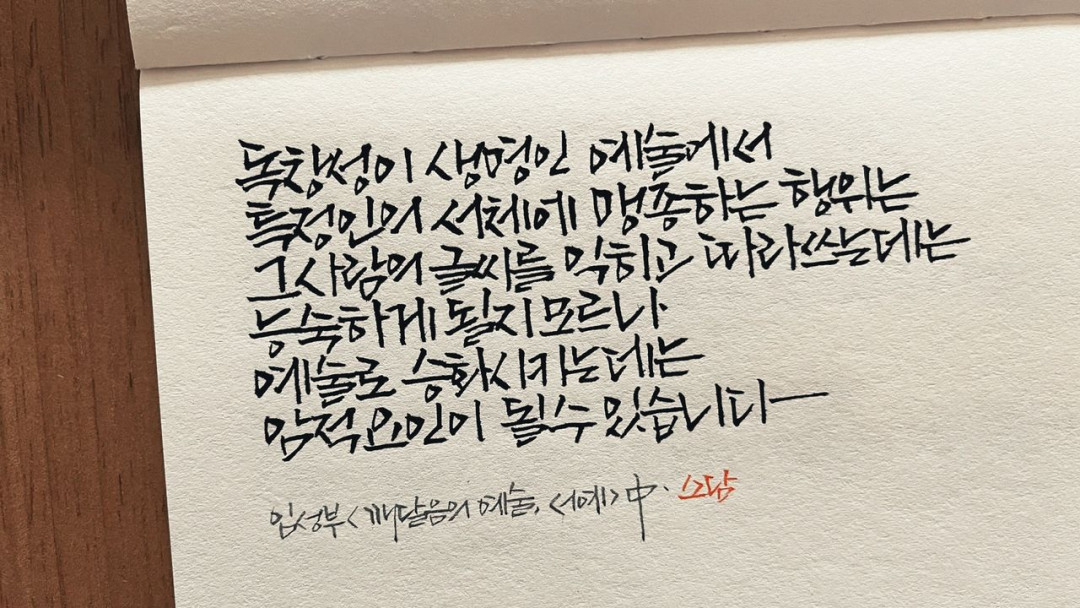 독창성이 생명인 예술에서
특정인의 서체에 맹종하는 행위는
그 사람의 글씨를 익히고 따라쓰는데는
능숙하게 될지 모르나
예술로 승화시키는데는
암적요인이 될 수 있습니다
임성부 <깨달음의 예술, 서예> 中.